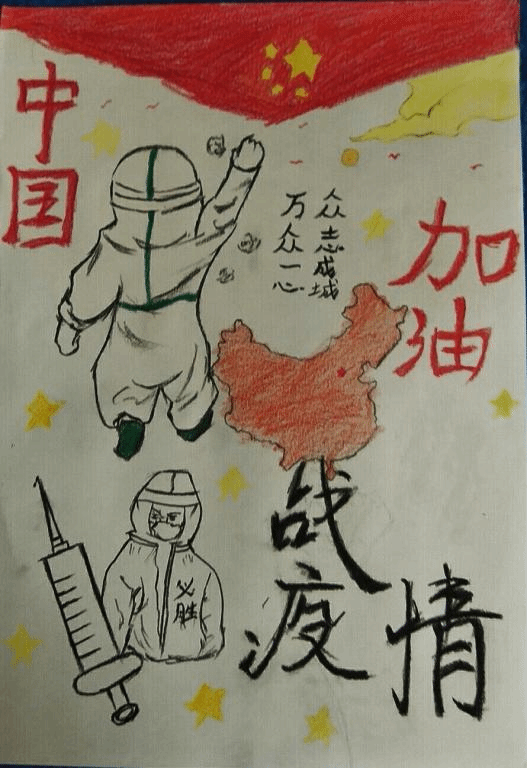 中国
加油
众志成城
万众一心
战疫情
必胜